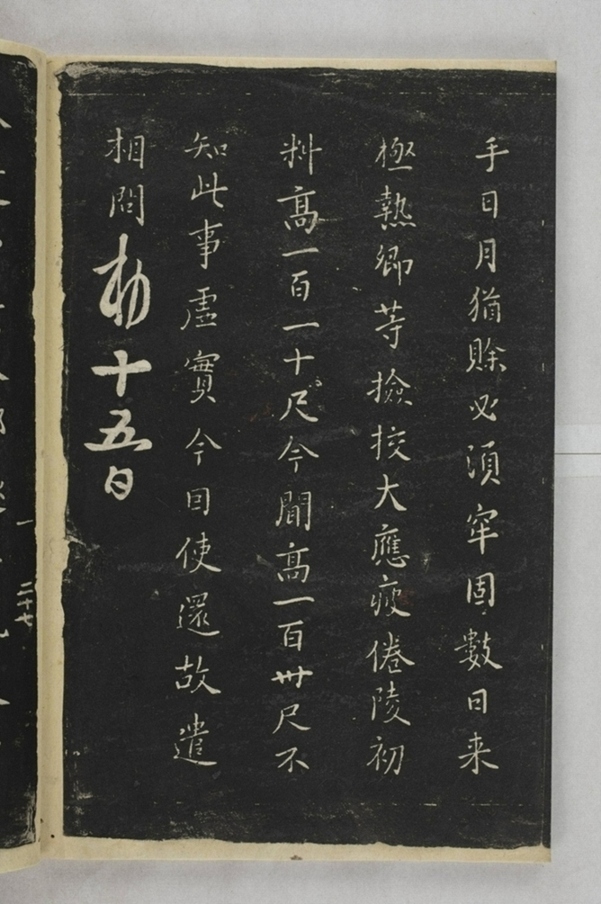 手日月猶賒必須牢固數日来
極熱卿等撿挍大應疲倦陵初
料高一百一十尺今聞高一百卌尺不
知此事虛實今因使還故遣
相問勅十五日
一 二十七